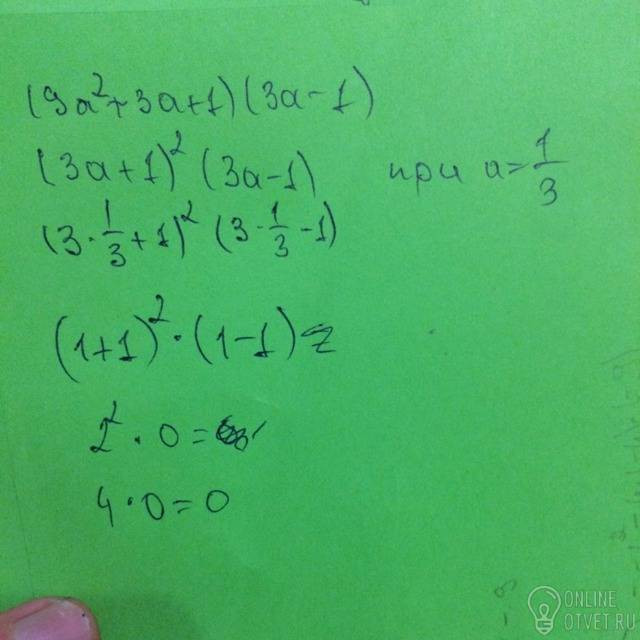 (9a²+3a+1)(3a-1)
(3a+1)² (3a-1) при a=1/3
(3·1/3+1)² (3·1/3-1)
(1+1)²·(1-1)=
2²·0=
4·0=0
ONLINE
OTVET.RU